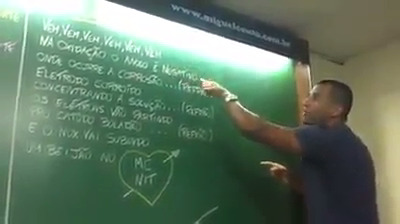 www.miguelcouto.com.br
VEM, VEM, VEM, VEM, VEM, VEM
NA OXIDAÇÃO O ANODO É NEGATIVO
ONDE OCORRE A CORROSÃO... (REFRÃO)
ELETRODO CORROÍDO
CONCENTRANDO A SOLUÇÃO... (REFRÃO)
OS ELÉTRONS VÃO PARTINDO
PRO CATODO BOLADÃO... (REFRÃO)
E O NOX VAI SUBINDO
UM BEIJÃO NO
MC
NIT